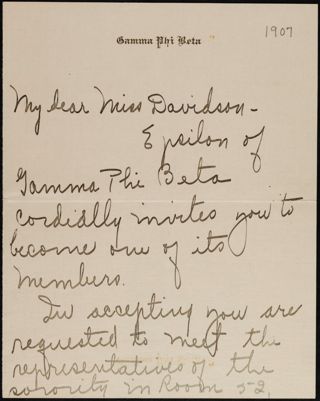 1907
Gamma Phi Beta
My dear Miss Davidson -
Epsilon of
Gamma Phi Beta
cordially invites you to
become one of its
members.
In accepting you are
requested to meet the
representatives of the
sorority in Room 52,